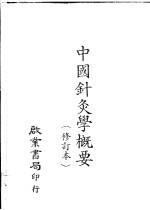 中國針灸學概要
(修訂本)
啟業書局印行